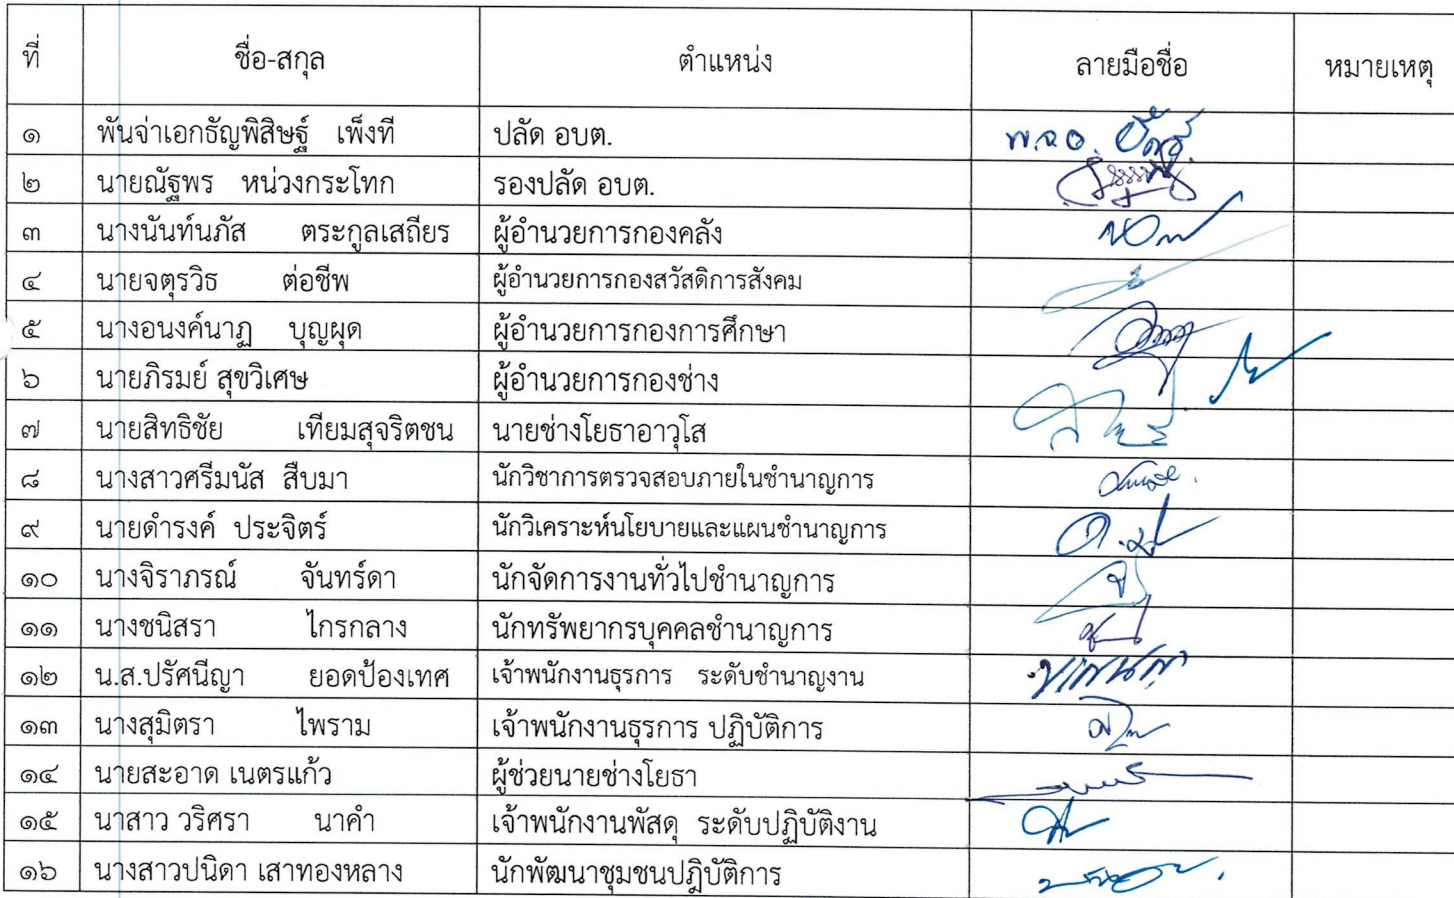 ที่ ชื่อ-สกุล ตำแหน่ง ลายมือชื่อ หมายเหตุ
๑ พันจ่าเอกธัญพิสิษฐ์ เพ็งที ปลัด อบต. พ.จ.อ.
๒ นายณัฐพร หน่วงกระโทก รองปลัด อบต.
๓ นางนันท์นภัส ตระกูลเสถียร ผู้อำนวยการกองคลัง
๔ นายจตุรวิธ ต่อชีพ ผู้อำนวยการกองสวัสดิการสังคม
๕ นางอนงค์นาฏ บุญผุด ผู้อำนวยการกองการศึกษา
๖ นายภิรมย์ สุขวิเศษ ผู้อำนวยการกองช่าง
๗ นายสิทธิชัย เทียมสุจริตชน นายช่างโยธาอาวุโส
๘ นางสาวศรีมนัส สืบมา นักวิชาการตรวจสอบภายในชำนาญการ
๙ นายดำรงค์ ประจิตร์ นักวิเคราะห์นโยบายและแผนชำนาญการ
๑๐ นางจิราภรณ์ จันทร์ดา นักจัดการงานทั่วไปชำนาญการ
๑๑ นางชนิสรา ไกรกลาง นักทรัพยากรบุคคลชำนาญการ
๑๒ น.ส.ปรัศนีญา ยอดป้องเทศ เจ้าพนักงานธุรการ ระดับชำนาญงาน
๑๓ นางสุมิตรา ไพราม เจ้าพนักงานธุรการ ปฏิบัติการ
๑๔ นายสะอาด เนตรแก้ว ผู้ช่วยนายช่างโยธา
๑๕ นาสาว วริศรา นาคำ เจ้าพนักงานพัสดุ ระดับปฏิบัติงาน
๑๖ นางสาวปนิดา เสาทองหลาง นักพัฒนาชุมชนปฎิบัติการ